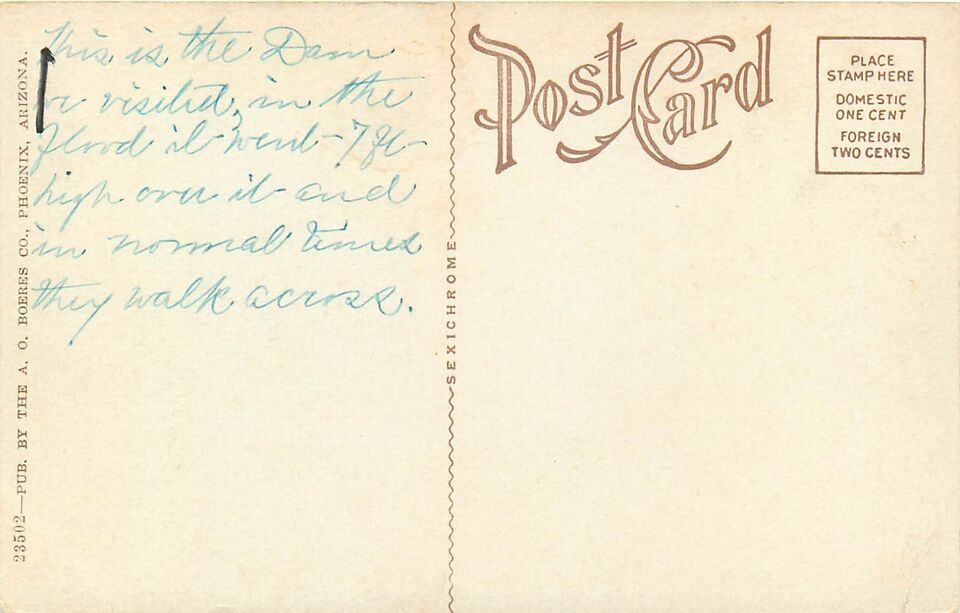 This is the Dam
we visited, in the
flood it went 7 ft
high over it and
in normal times
they walk across.
23502—PUB. BY THE A. O. BOERES CO., PHOENIX, ARIZONA.
SEXICHROME
Post Card
PLACE
STAMP HERE
DOMESTIC
ONE CENT
FOREIGN
TWO CENTS